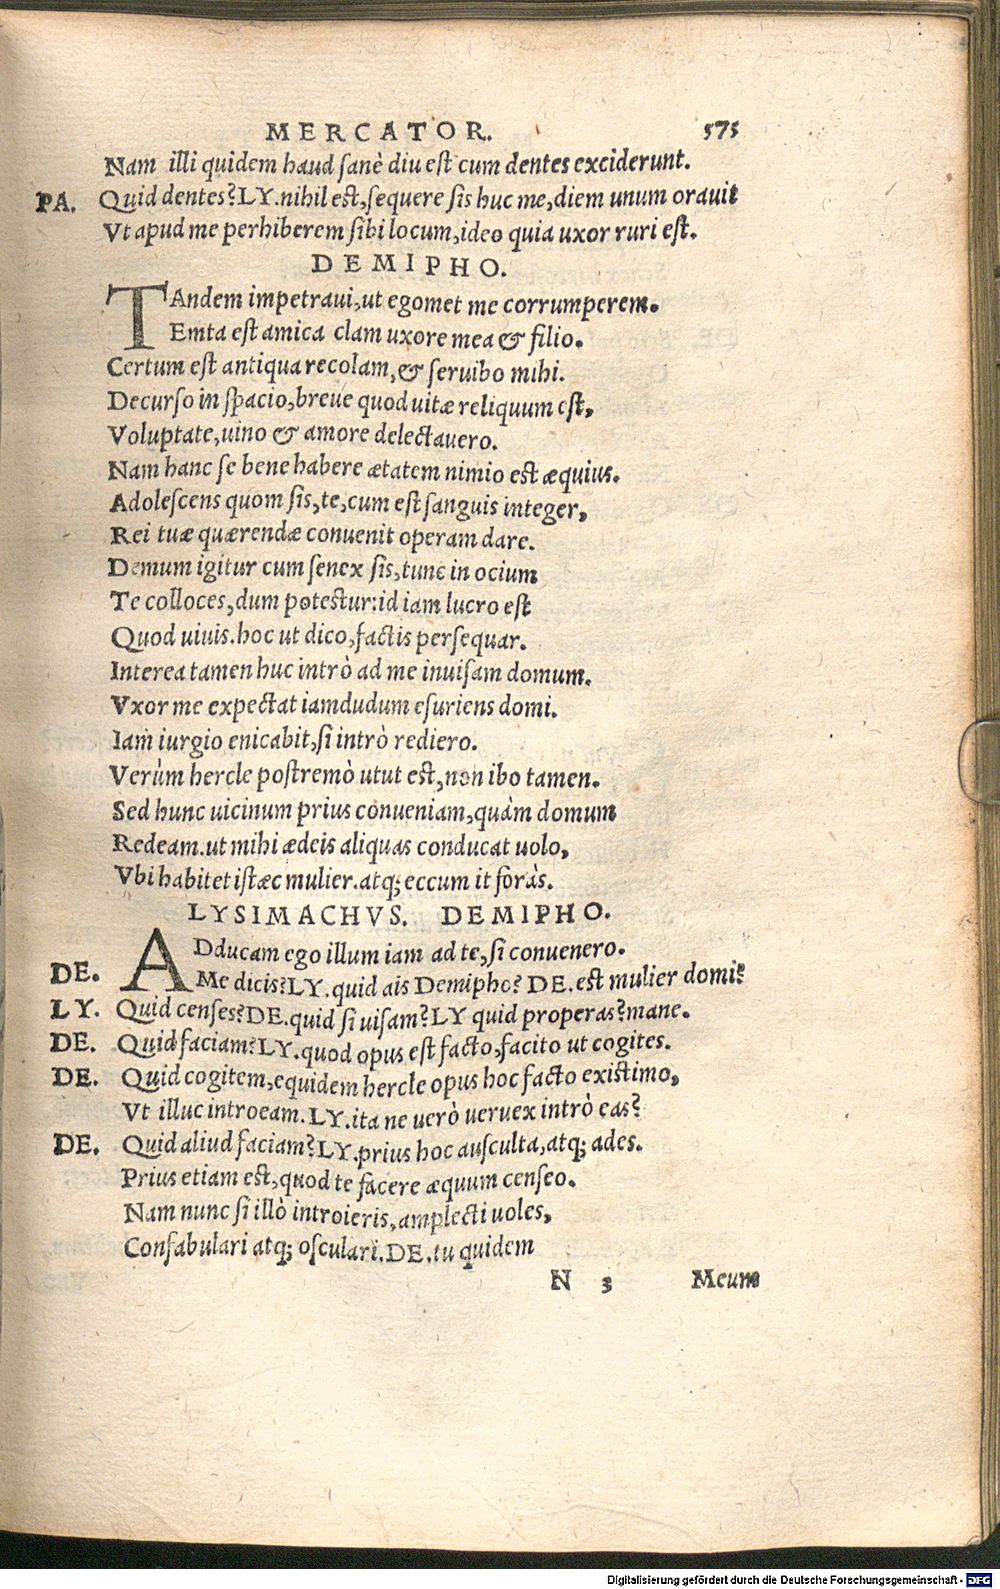 MERCATOR. 575
Nam illi quidem haud sanè diu est cum dentes exciderunt.
PA. Quid dentes? LY. nihil est, sequere sis huc me, diem unum orauit
Vt apud me perhiberem sibi locum, ideo quia uxor ruri est.
DEMIPHO.
TAndem impetraui, ut egomet me corrumperem.
Emta est amica clam uxore mea & filio.
Certum est antiqua recolam, & seruibo mihi.
Decurso in spacio, breue quod uitæ reliquum est,
Voluptate, uino & amore delectauero.
Nam hanc se bene habere ætatem nimio est æquius.
Adolescens quom sis, te, cum est sanguis integer,
Rei tuæ quærendæ conuenit operam dare.
Demum igitur cum senex sis, tunc in ocium
Te colloces, dum potestur: id iam lucro est
Quod uiuis. hoc ut dico, factis persequar.
Interea tamen huc intrò ad me inuisam domum.
Vxor me expectat iamdudum esuriens domi.
Iam iurgio enicabit, si intrò rediero.
Verùm hercle postremò utut est, non ibo tamen.
Sed hunc uicinum prius conueniam, quàm domum
Redeam. ut mihi ædeis aliquas conducat uolo,
Vbi habitet istæc mulier. atq; eccum it foràs.
LYSIMACHVS. DEMIPHO.
ADducam ego illum iam ad te, si conuenero.
DE. Me dicis? LY. quid ais Demipho? DE. est mulier domi?
LY. Quid censes? DE. quid si uisam? LY quid properas? mane.
DE. Quid faciam? LY. quod opus est facto, facito ut cogites.
DE. Quid cogitem, equidem hercle opus hoc facto existimo,
Vt illuc introeam. LY. ita ne uerò ueruex intrò eas?
DE. Quid aliud faciam? LY. prius hoc ausculta, atq; ades.
Prius etiam est, quod te facere æquum censeo.
Nam nunc si illò introieris, amplecti uoles,
Confabulari atq; osculari. DE. tu quidem
N 3 Meum
Digitalisierung gefördert durch die Deutsche Forschungsgemeinschaft - DFG